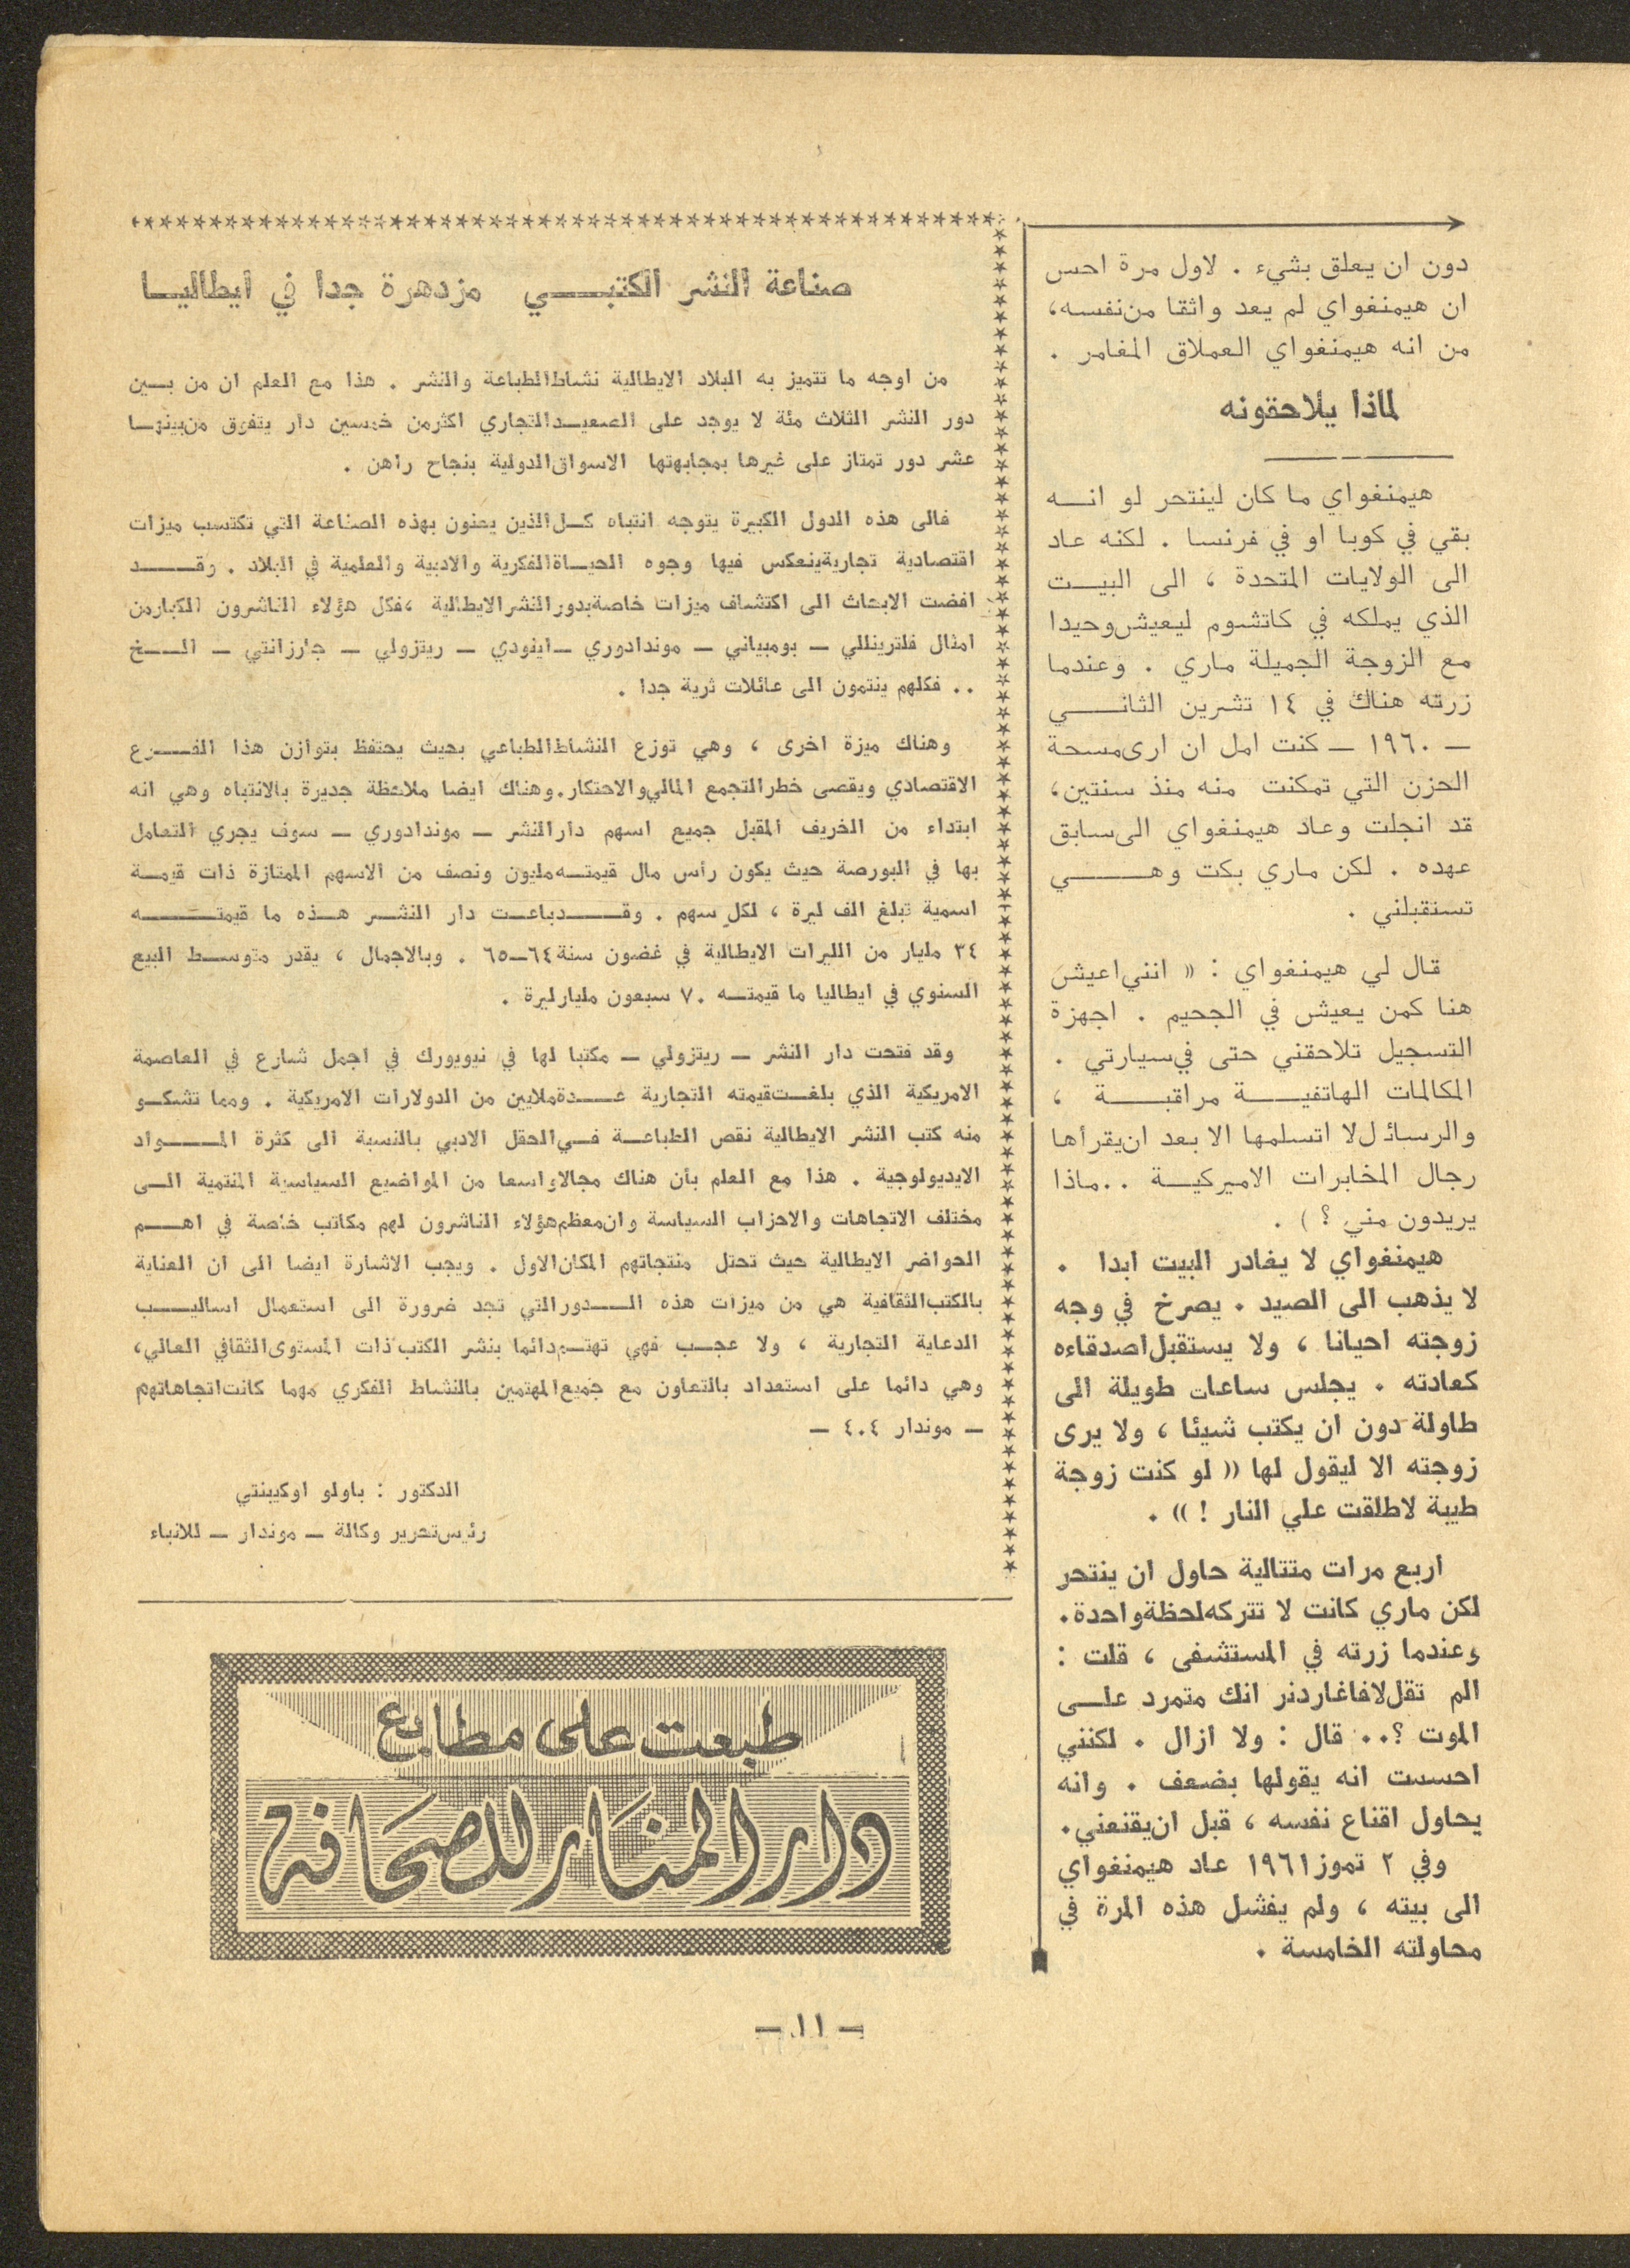 دون ان يعلق بشيء . لاول مرة احس
ان هيمنغواي لم يعد واثقا من نفسه،
من انه هيمنغواي العملاق المغامر .
لماذا يلاحقونه
هيمنغواي ما كان لينتحر لو انـــه
بقي في كوبا او في فرنسا . لكنه عاد
الى الولايات المتحدة ، الى البيــت
الذي يملكه في كاتشوم ليعيش وحيدا
مع الزوجة الجميلة ماري . وعندما
زرته هناك في ١٤ تشرين الثانــــي
— ١٩٦٠ — كنت امل ان ارى مسحة
الحزن التي تمكنت منه منذ سنتين،
قد انجلت وعاد هيمنغواي الى سابق
عهده . لكن ماري بكت وهـــــي
تستقبلني .
قال لي هيمنغواي : « انني اعيش
هنا كمن يعيش في الجحيم . اجهزة
التسجيل تلاحقني حتى في سيارتي .
المكالمات الهاتفيـــة مراقبــــة ،
والرسائل لا اتسلمها الا بعد ان يقرأها
رجال المخابرات الاميركيـــة .. ماذا
يريدون مني ؟ ) .
هيمنغواي لا يغادر البيت ابدا .
لا يذهب الى الصيد . يصرخ في وجه
زوجته احيانا ، ولا يستقبل اصدقاءه
كعادته . يجلس ساعات طويلة الى
طاولة دون ان يكتب شيئا ، ولا يرى
زوجته الا ليقول لها « لو كنت زوجة
طيبة لاطلقت علي النار ! » .
اربع مرات متتالية حاول ان ينتحر
لكن ماري كانت لا تتركه لحظة واحدة.
وعندما زرته في المستشفى ، قلت :
الم تقل لافا غاردنر انك متمرد علـــى
الموت ؟.. قال : ولا ازال . لكنني
احسست انه يقولها بضعف . وانه
يحاول اقناع نفسه ، قبل ان يقنعني.
وفي ٢ تموز ١٩٦١ عاد هيمنغواي
الى بيته ، ولم يفشل هذه المرة في
محاولته الخامسة .
صناعة النشر الكتبــــي مزدهرة جدا في ايطاليـــا
من اوجه ما تتميز به البلاد الايطالية نشاط الطباعة والنشر . هذا مع العلم ان من بـــين
دور النشر الثلاث مئة لا يوجد على الصعيـــد التجاري اكثر من خمسين دار يتفوق من بينهـــا
عشر دور تمتاز على غيرها بمجابهتها الاسواق الدولية بنجاح راهن .
فالى هذه الدول الكبيرة يتوجه انتباه كـــل الذين يعنون بهذه الصناعة التي تكتسب ميزات
اقتصادية تجارية ينعكس فيها وجوه الحيـــاة الفكرية والادبية والعلمية في البلاد . وقـــــد
افضت الابحاث الى اكتشاف ميزات خاصة بدور النشر الايطالية ، فكل هؤلاء الناشرون الكبار من
امثال فلترينللي — بومبياني — موندادوري — اينودي — ريتزولي — جارزانتي — الـــخ
.. فكلهم ينتمون الى عائلات ثرية جدا .
وهناك ميزة اخرى ، وهي توزع النشاط الطباعي بحيث يحتفظ بتوازن هذا الفـــــرع
الاقتصادي ويقصى خطر التجمع المالي والاحتكار. وهناك ايضا ملاحظة جديرة بالانتباه وهي انه
ابتداء من الخريف المقبل جميع اسهم دار النشر — موندادوري — سوف يجري التعامل
بها في البورصة حيث يكون رأس مال قيمتـــه مليون ونصف من الاسهم الممتازة ذات قيمـــة
اسمية تبلغ الف ليرة ، لكل سهم . وقـــــد باعـــت دار النشـــر هـــذه ما قيمتـــــه
٣٤ مليار من الليرات الايطالية في غضون سنة ٦٤—٦٥ . وبالاجمال ، يقدر متوســـط البيع
السنوي في ايطاليا ما قيمتـــه ٧٠ سبعون مليار ليرة .
وقد فتحت دار النشر — ريتزولي — مكتبا لها في نيويورك في اجمل شارع في العاصمة
الامريكية الذي بلغـــت قيمته التجارية عـــدة ملايين من الدولارات الامريكية . ومما تشكـــو
منه كتب النشر الايطالية نقص الطباعـــة فـــي الحقل الادبي بالنسبة الى كثرة المـــــواد
الايديولوجية . هذا مع العلم بأن هناك مجالا واسعا من المواضيع السياسية المنتمية الـــى
مختلف الاتجاهات والاحزاب السياسة وان معظم هؤلاء الناشرون لهم مكاتب خاصة في اهـــم
الحواضر الايطالية حيث تحتل منتجاتهم المكان الاول . ويجب الاشارة ايضا الى ان العناية
بالكتب الثقافية هي من ميزات هذه الـــدور التي تجد ضرورة الى استعمال اساليـــب
الدعاية التجارية ، ولا عجـــب فهي تهتـــم دائما بنشر الكتب ذات المستوى الثقافي العالي،
وهي دائما على استعداد بالتعاون مع جميع المهتمين بالنشاط الفكري مهما كانت اتجاهاتهم
— موندار ٤٠٤ —
الدكتور : باولو اوكيبنتي
رئيس تحرير وكالة — موندار — للانباء
طبعت على مطابع
دار المنار للصحافة
— ١١ —